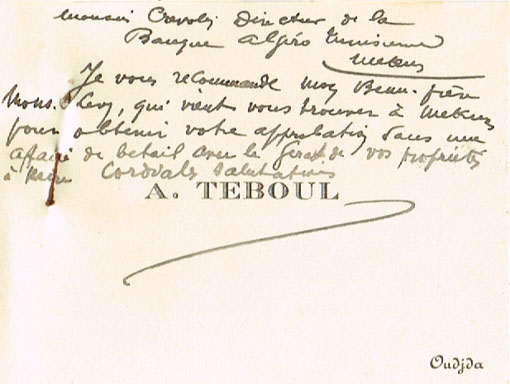 Monsieur Crevoli Directeur de la
Banque Algéro Tunisienne
Meknes
Je vous recommande mon Beau-frère
Mons. Levy, qui vient vous trouver à Meknes
pour obtenir votre approbation dans une
affaire de betail avec le Gerant de vos propriétés
à
Cordiales salutations
A. TEBOUL
Oudjda